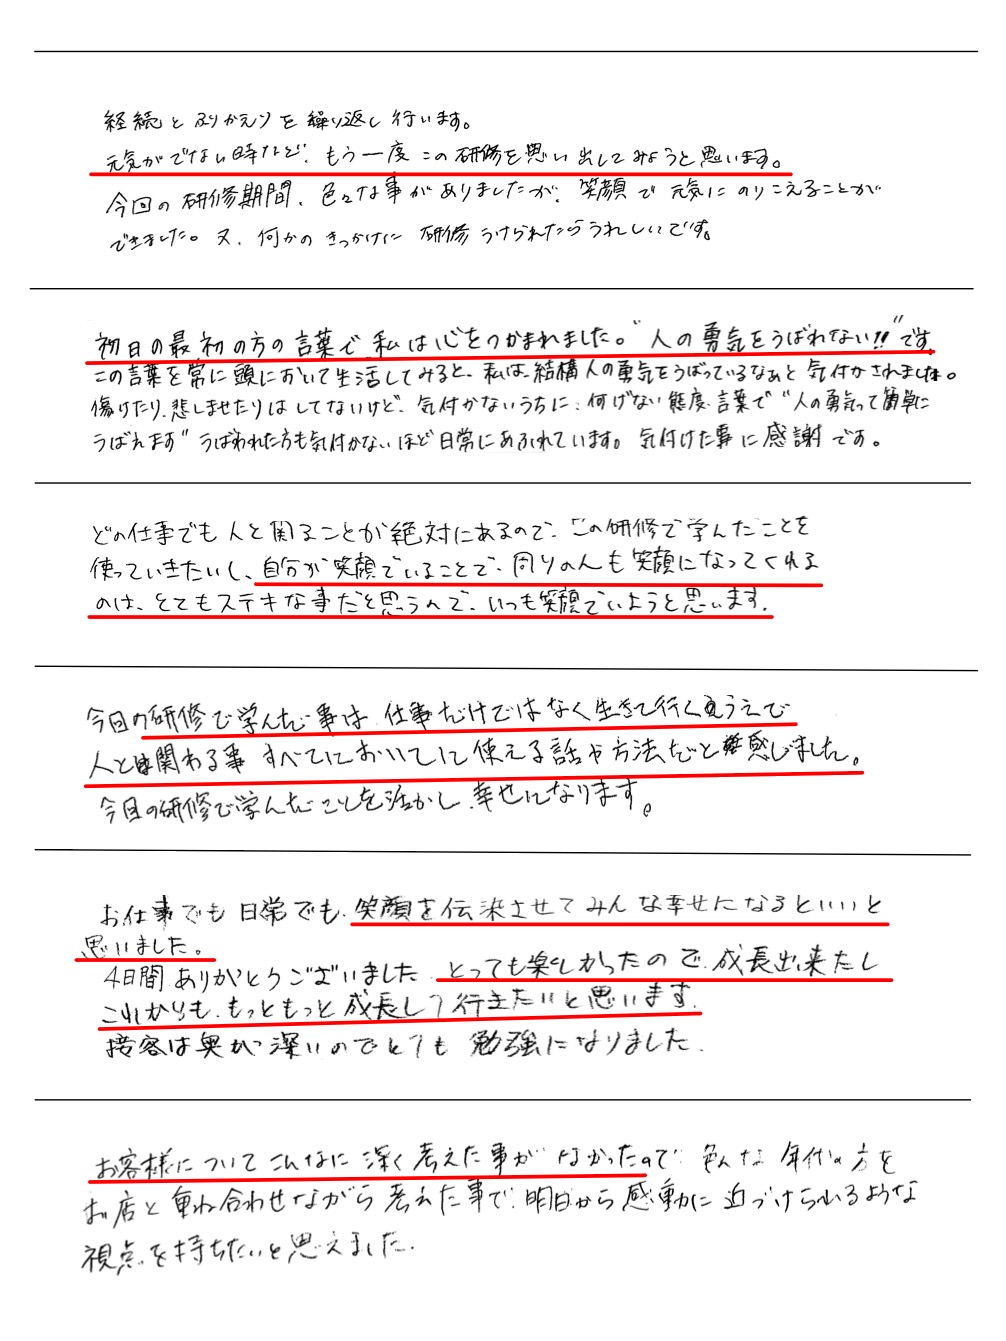 経続とふりかえりを繰り返し行います。
元気がでない時など、もう一度この研修を思い出してみようと思います。
今回の研修期間、色々な事がありましたが、笑顔で元気にのりこえることが
できました。又、何かのきっかけに研修うけられたらうれしいです。
初日の最初の方の言葉で私は心をつかまれました。"人の勇気をうばわない!!"です
この言葉を常に頭において生活してみると、私は、結構人の勇気をうばっているなぁと気付かされました。
傷けたり、悲しませたりはしてないけど、気付かないうちに、何げない態度、言葉で"人の勇気って簡単に
うばえます"うばわれた方も気付かないほど日常にあふれています。気付けた事に感謝です。
どの仕事でも人と関ることが絶対にあるので、この研修で学んだことを
使っていきたいし、自分が笑顔でいることで、周りの人も笑顔になってくれる
のは、とてもステキな事だと思うので、いつも笑顔でいようと思います。
今回の研修で学んだ事は、仕事だけではなく生きて行くうえで
人と関わる事すべてにおいてに使える話や方法だと感じました。
今回の研修で学んだことを活かし、幸せになります。
お仕事でも日常でも、笑顔を伝染させてみんな幸せになるといいと
思いました。
4日間ありがとうございました。とっても楽しかったので、成長出来たし
これからも、もっともっと成長して行きたいと思います。
接客は奥が深いのでとても勉強になりました。
お客様についてこんなに深く考えた事がなかったので、色んな年代の方を
お店と重ね合わせながら考えた事で、明日から感動に近づけられるような
視点を持ちたいと思えました。